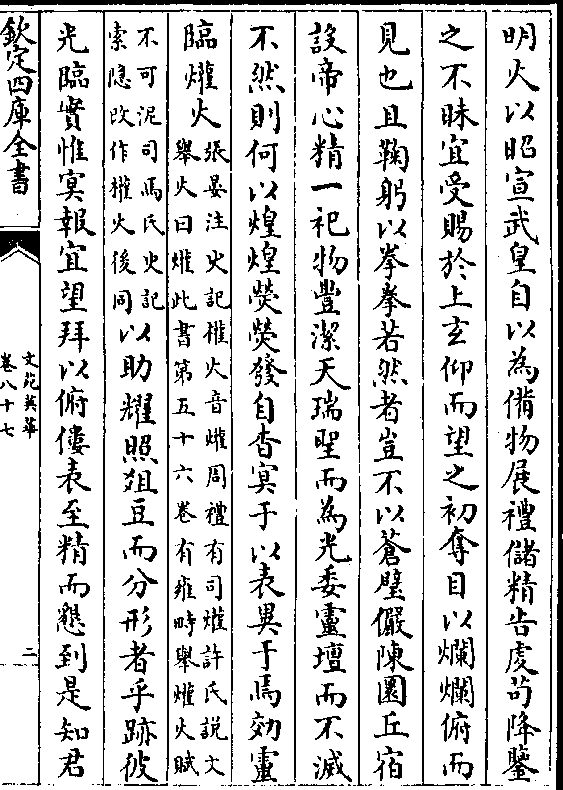 明火以昭宣武皇自以為備物展禮儲精告虔茍降鑒
之不昧宜受賜於上玄仰而望之初奪目以爛爛俯而
見也且鞠躬以拳拳若然者豈不以蒼璧儼陳圜丘宿
設帝心精一祀物豐潔天瑞聖而為光委靈壇而不滅
不然則何以煌煌熒熒發自杳冥于以表異于焉効靈
臨爟火張晏注史記權火音爟周禮有司爟許氏說文
舉火曰爟此書第五十六卷有雍畤舉爟火賦
不可泥司馬氏史記
索隐改作權火後同以助耀照爼豆而分形者乎跡彼
光臨實惟冥報宜望拜以俯僂表至精而懇到是知君
欽定四庫全書
文苑英華
卷八十七
二